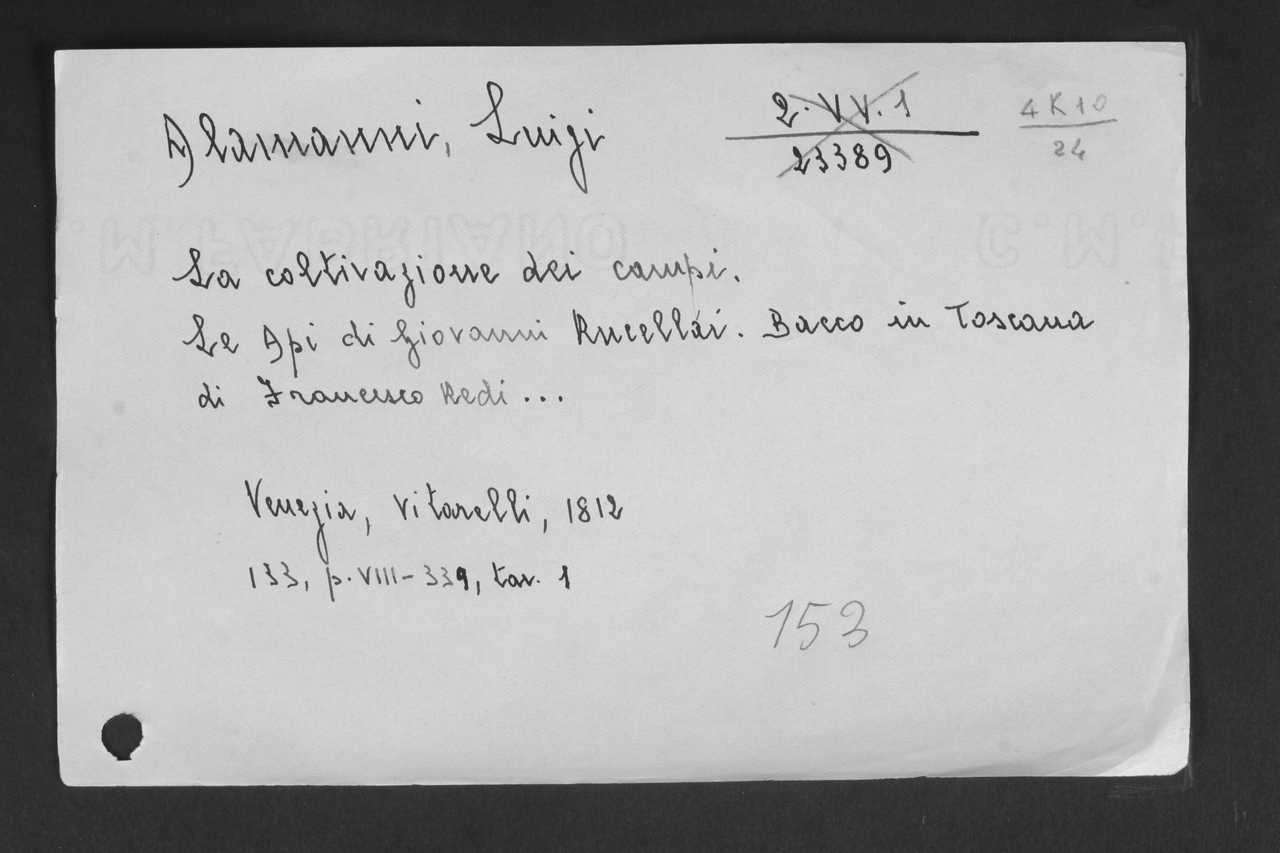 Alamanni, Luigi
2. VV. 1
23389
4 K 10
24
La coltivazione dei campi.
Le Api di Giovanni Rucellai. Bacco in Toscana
di Francesco Redi ...
Venezia, Vitarelli, 1812
133, p. VIII-339, tav. 1
153
C.M. FABRIANO
C.M.